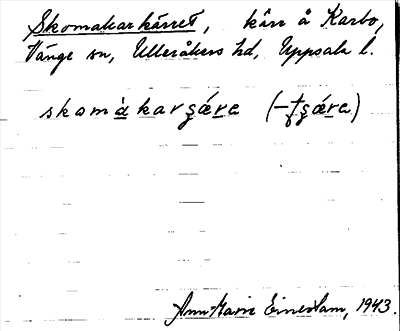 Skomakarkärret, kärr å Karbo,
Vänge sn, Ulleråkers hd, Uppsala l.
skomàkarʒǽre (-ʒǽre)
Ann-Marie 1943.